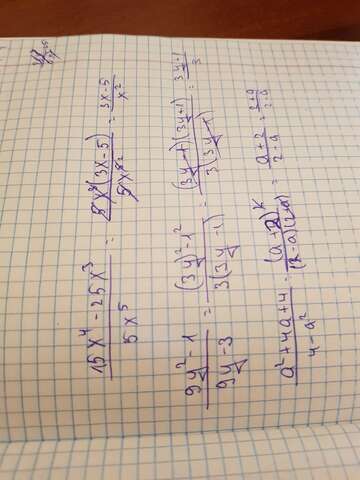 (15x⁴ - 25x³)/(5x⁵) = (5x³(3x-5))/(5x⁵²) = (3x-5)/x²
(9y² - 1)/(9y - 3) = ((3y)² - 1²)/(3(3y - 1)) = ((3y-1)(3y+1))/(3(3y-1)) = (3y+1)/3
(a² + 4a + 4)/(4 - a²) = (a+2)²/((2-a)(2+a)) = (a+2)/(2-a)